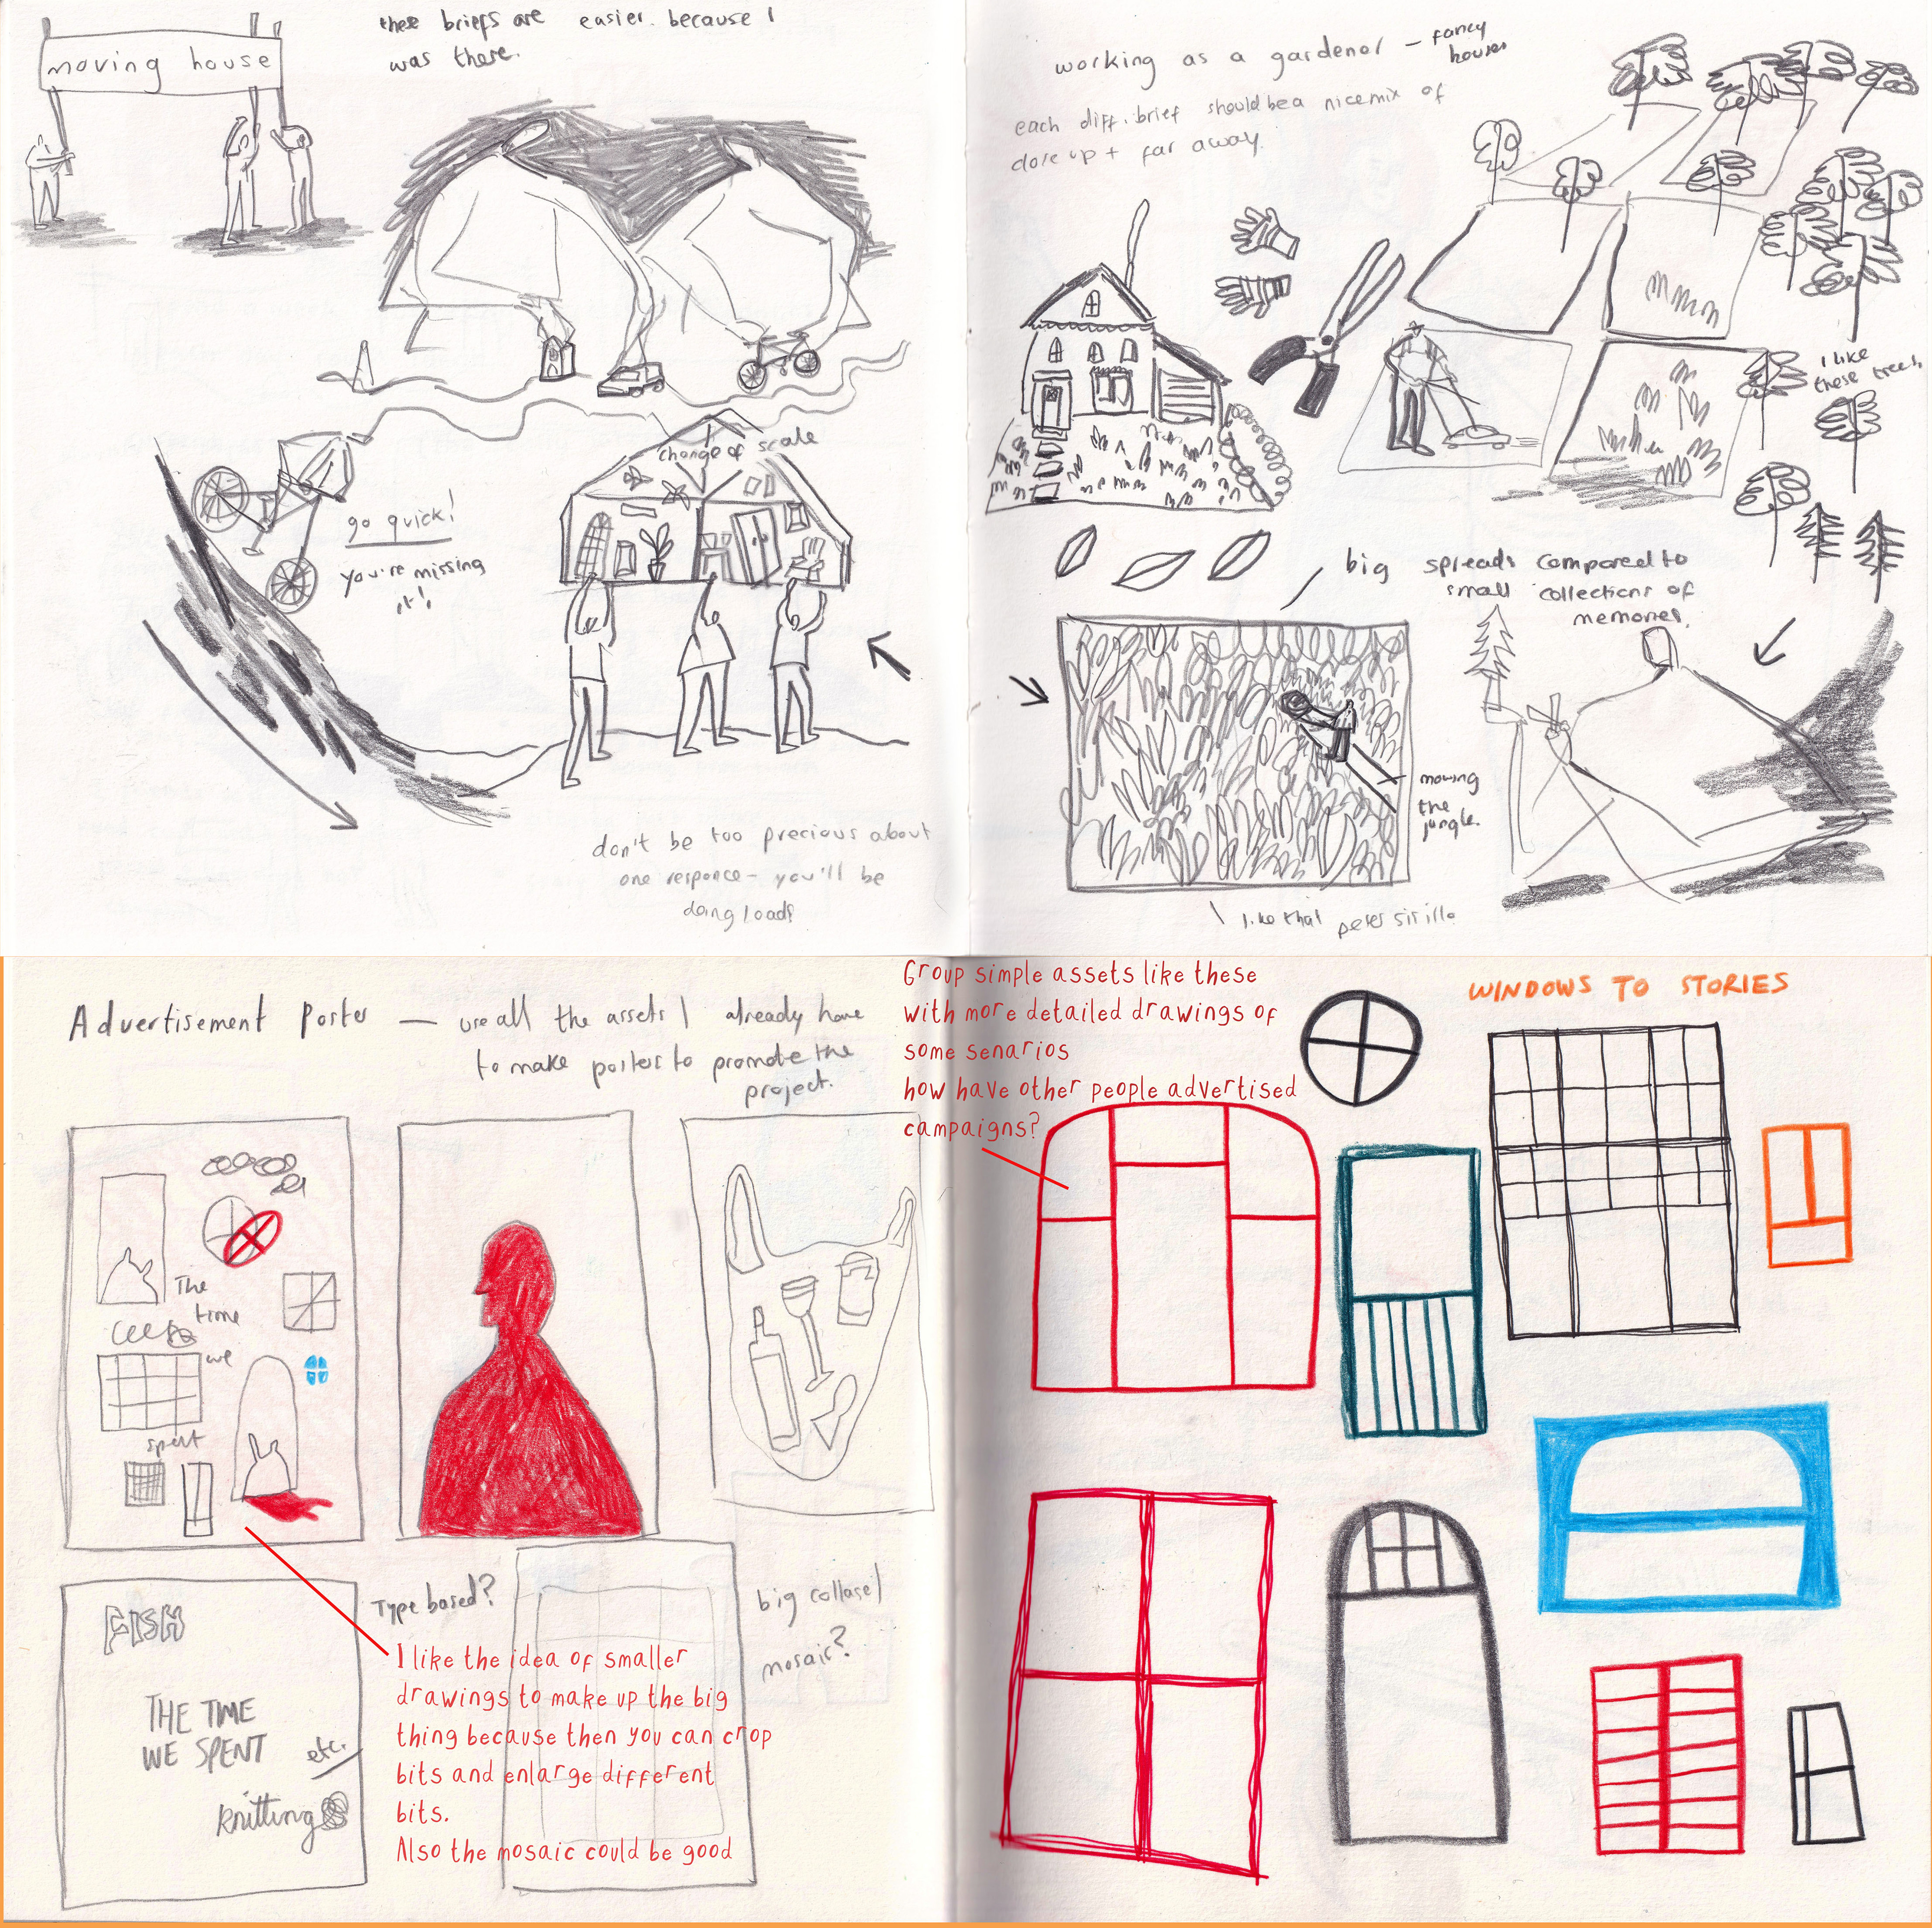 moving house
these briefs are easier. because I
was there.
change of scale
go quick!
you're missing
it!
don't be too precious about
one responce – you'll be
doing loads
working as a gardener – fancy
houses
each diff. brief should be a nice mix of
close up + far away.
I like
these trees
big spreads compared to
small collections of
memories.
mowing
the
jungle.
like that
Advertisement Poster — use all the assets I already have
to make posters to promote the
project.
The
time
we
spent
FISH
THE TIME
WE SPENT
etc.
knitting
Type based?
big collage/
mosaic?
I like the idea of smaller
drawings to make up the big
thing because then you can crop
bits and enlarge different
bits.
Also the mosaic could be good
Group simple assets like these
with more detailed drawings of
some senarios
how have other people advertised
campaigns?
WINDOWS TO STORIES